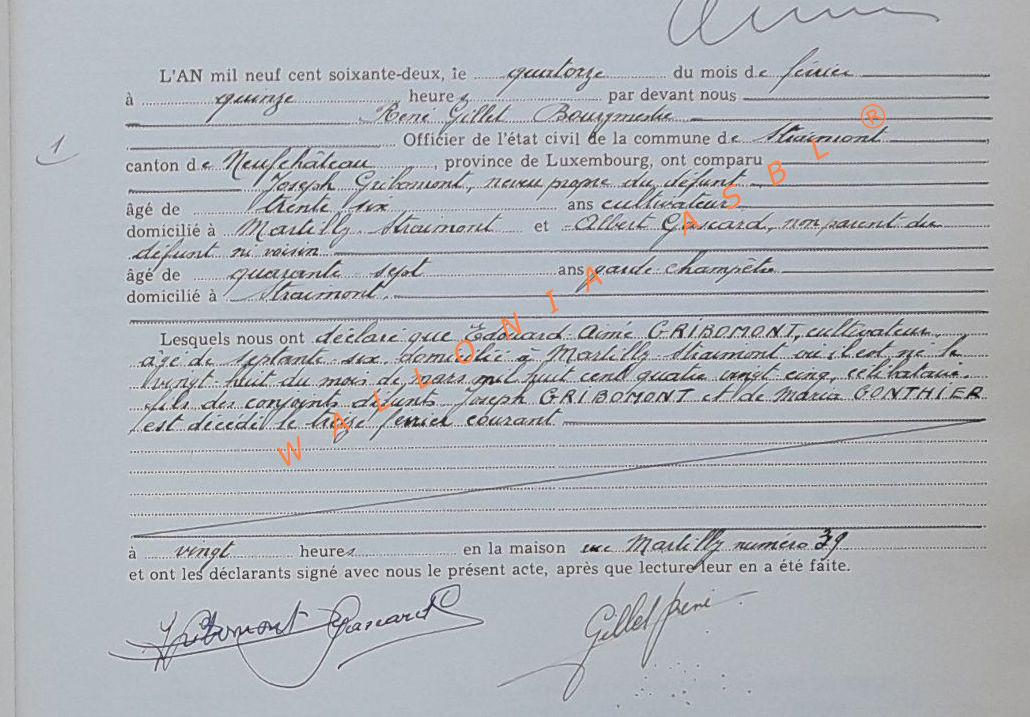 L'AN mil neuf cent soixante-deux, le quatorze du mois de février
à quinze heures par devant nous
René Gillet Bourgmestre
1 Officier de l'état civil de la commune de Straimont
canton de Neufchâteau, province de Luxembourg, ont comparu
Joseph Gribomont, neveu propre du défunt
âgé de trente six ans cultivateur
domicilié à Martilly Straimont et Albert Gascard, non parent du
défunt ni voisin
âgé de quarante sept ans garde champêtre
domicilié à Straimont.
Lesquels nous ont déclaré que Edouard Aimé GRIBOMONT, cultivateur
âgé de septante six, domicilié à Martilly Straimont où il est né le
vingt huit du mois de mars mil huit cent quatre vingt cinq, célibataire
fils des conjoints défunts Joseph GRIBOMONT et de Maria GONTHIER
est décédé le treize février courant
à vingt heures en la maison Martilly numéro 39
et ont les déclarants signé avec nous le présent acte, après que lecture leur en a été faite.
Gribomont Gascard Gillet René
WALLONIA ASBL ®